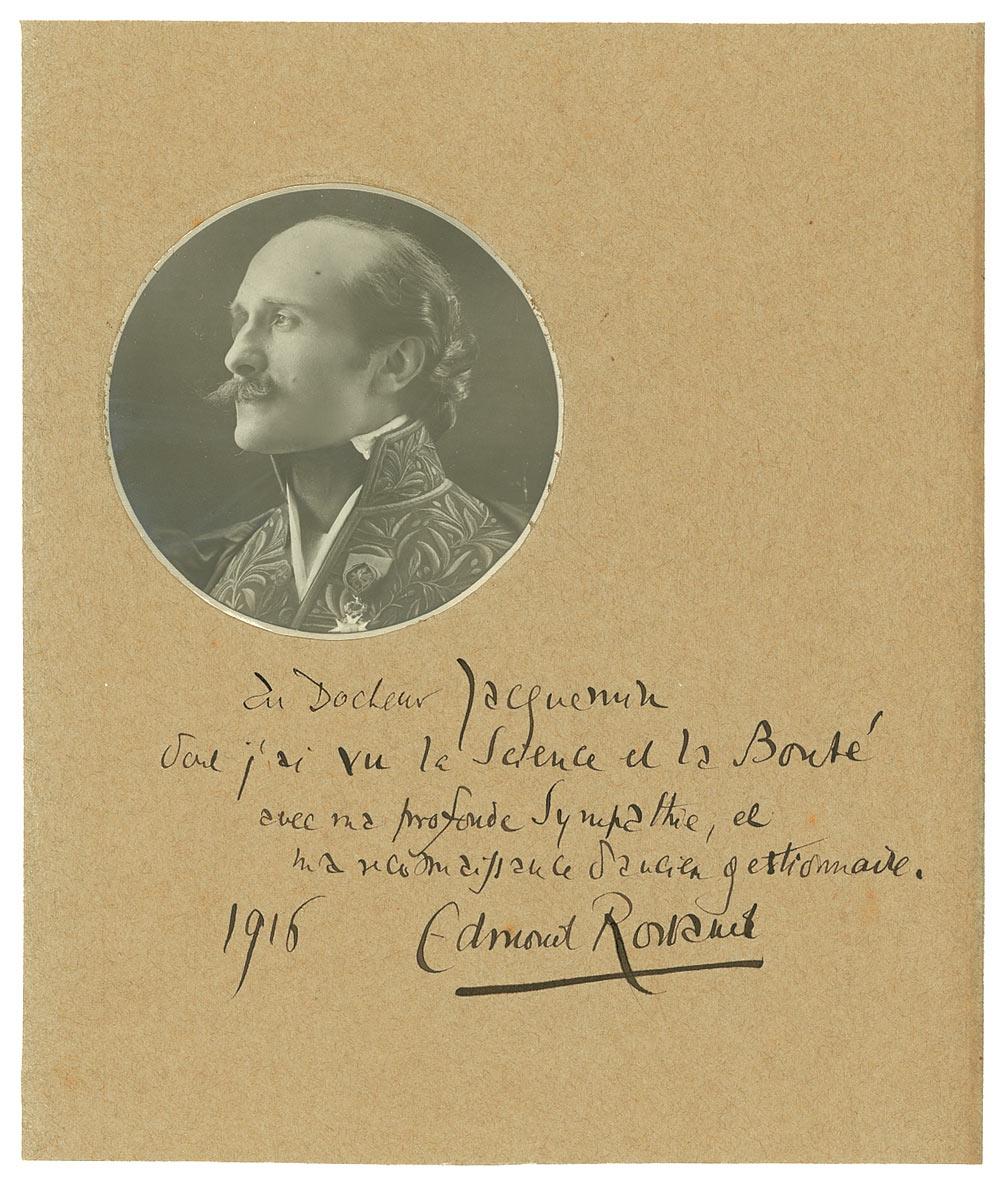 Au Docteur Jacquemin
dont j'ai vu la Science et la Bonté
avec ma profonde Sympathie, et
ma reconnaissance d'ancien gestionnaire.
1916 Edmond Rostand